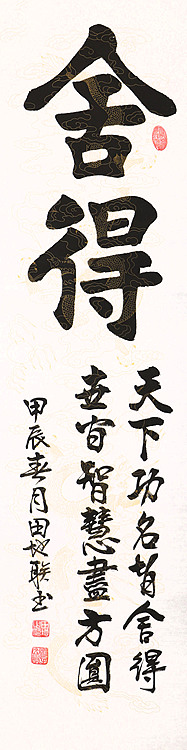 舍得
天下功名皆舍得
世间智慧盡方圓
甲辰春月田地联书